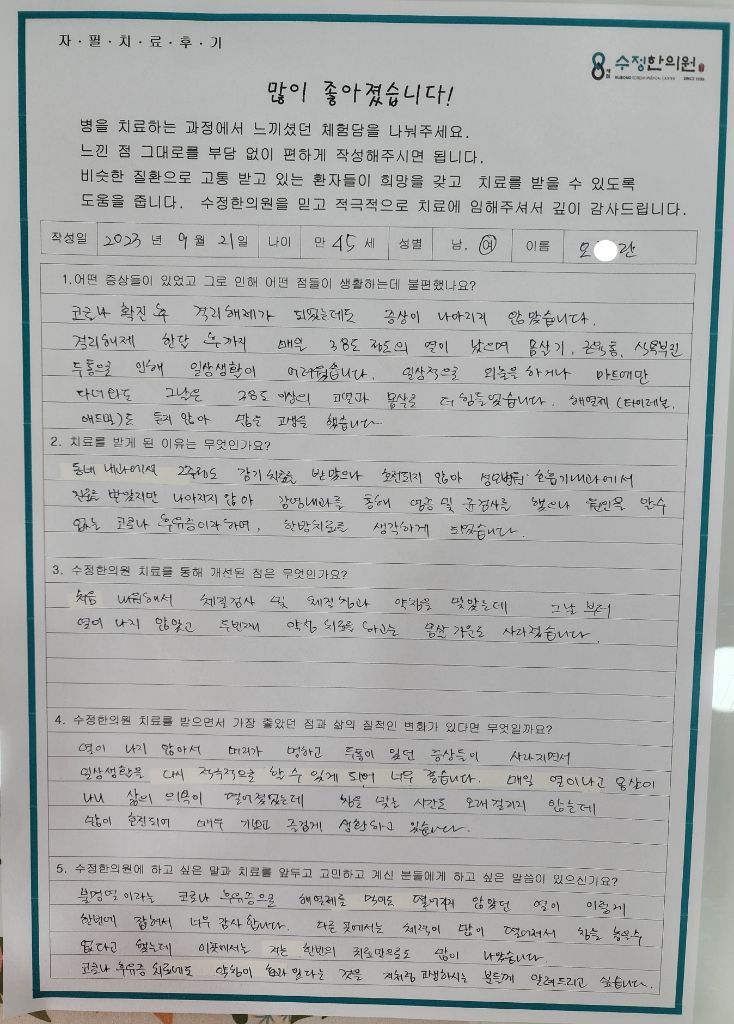 자·필·치·료·후·기
8체질 수정한의원
SUJEONG KOREAN MEDICAL CENTER SINCE 1996
많이 좋아졌습니다!
병을 치료하는 과정에서 느끼셨던 체험담을 나눠주세요.
느낀 점 그대로를 부담 없이 편하게 작성해주시면 됩니다.
비슷한 질환으로 고통 받고 있는 환자들이 희망을 갖고 치료를 받을 수 있도록
도움을 줍니다. 수정한의원을 믿고 적극적으로 치료에 임해주셔서 깊이 감사드립니다.
작성일 2023 년 9 월 21 일 나이 만 45 세 성별 남, 여 이름 오 란
1.어떤 증상들이 있었고 그로 인해 어떤 점들이 생활하는데 불편했나요?
코로나 확진 후 격리해제가 되었는데도 증상이 나아지지 않았습니다.
격리해제 한달 후까지 매일 38도 정도의 열이 났으며 몸살기, 근육통, 식욕부진
두통으로 인해 일상생활이 어려웠습니다. 일상적으로 외출을 하거나 마트에만
다녀와도 그날은 38도 이상의 고열과 몸살로 더 힘들었습니다. 해열제 (타이레놀,
애드빌)도 듣지 않아 많은 고생을 했습니다.
2. 치료를 받게 된 이유는 무엇인가요?
동네 내과에서 2주정도 감기 치료를 받았으나 호전되지 않아 성모병원 호흡기내과에서
진료를 받았지만 나아지지 않아 감염내과를 통해 염증 및 균검사를 했으나 원인을 알수
없는 코로나 후유증이라하여, 한방치료를 생각하게 되었습니다.
3. 수정한의원 치료를 통해 개선된 점은 무엇인가요?
처음 내원해서 체질검사 및 체질침과 약침을 맞았는데 그날 부터
열이 나지 않았고 두번째 약침 치료를 하고는 몸살 기운도 사라졌습니다.
4. 수정한의원 치료를 받으면서 가장 좋았던 점과 삶의 질적인 변화가 있다면 무엇일까요?
열이 나지 않아서 머리가 멍하고 두통이 있던 증상들이 사라지면서
일상생활을 다시 적극적으로 할 수 있게 되어 너무 좋습니다. 매일 열이나고 몸살이
나니 삶의 의욕이 떨어졌었는데 침을 맞는 시간도 오래걸리지 않는데
많이 호전되어 매우 기쁘고 즐겁게 생활하고 있습니다.
5. 수정한의원에 하고 싶은 말과 치료를 앞두고 고민하고 계신 분들에게 하고 싶은 말씀이 있으신가요?
불명열이라는 코로나 후유증으로 해열제를 먹어도 떨어지지 않았던 열이 이렇게
한번에 잡혀서 너무 감사합니다. 다른 곳에서는 체력이 많이 떨어져서 침을 놓을수
없다고 했는데 이곳에서는 저는 한번의 치료만으로도 많이 나았습니다.
코로나 후유증 치료에도 약침이 효과 있다는 것을 저처럼 고생하시는 분들께 알려드리고 싶습니다.